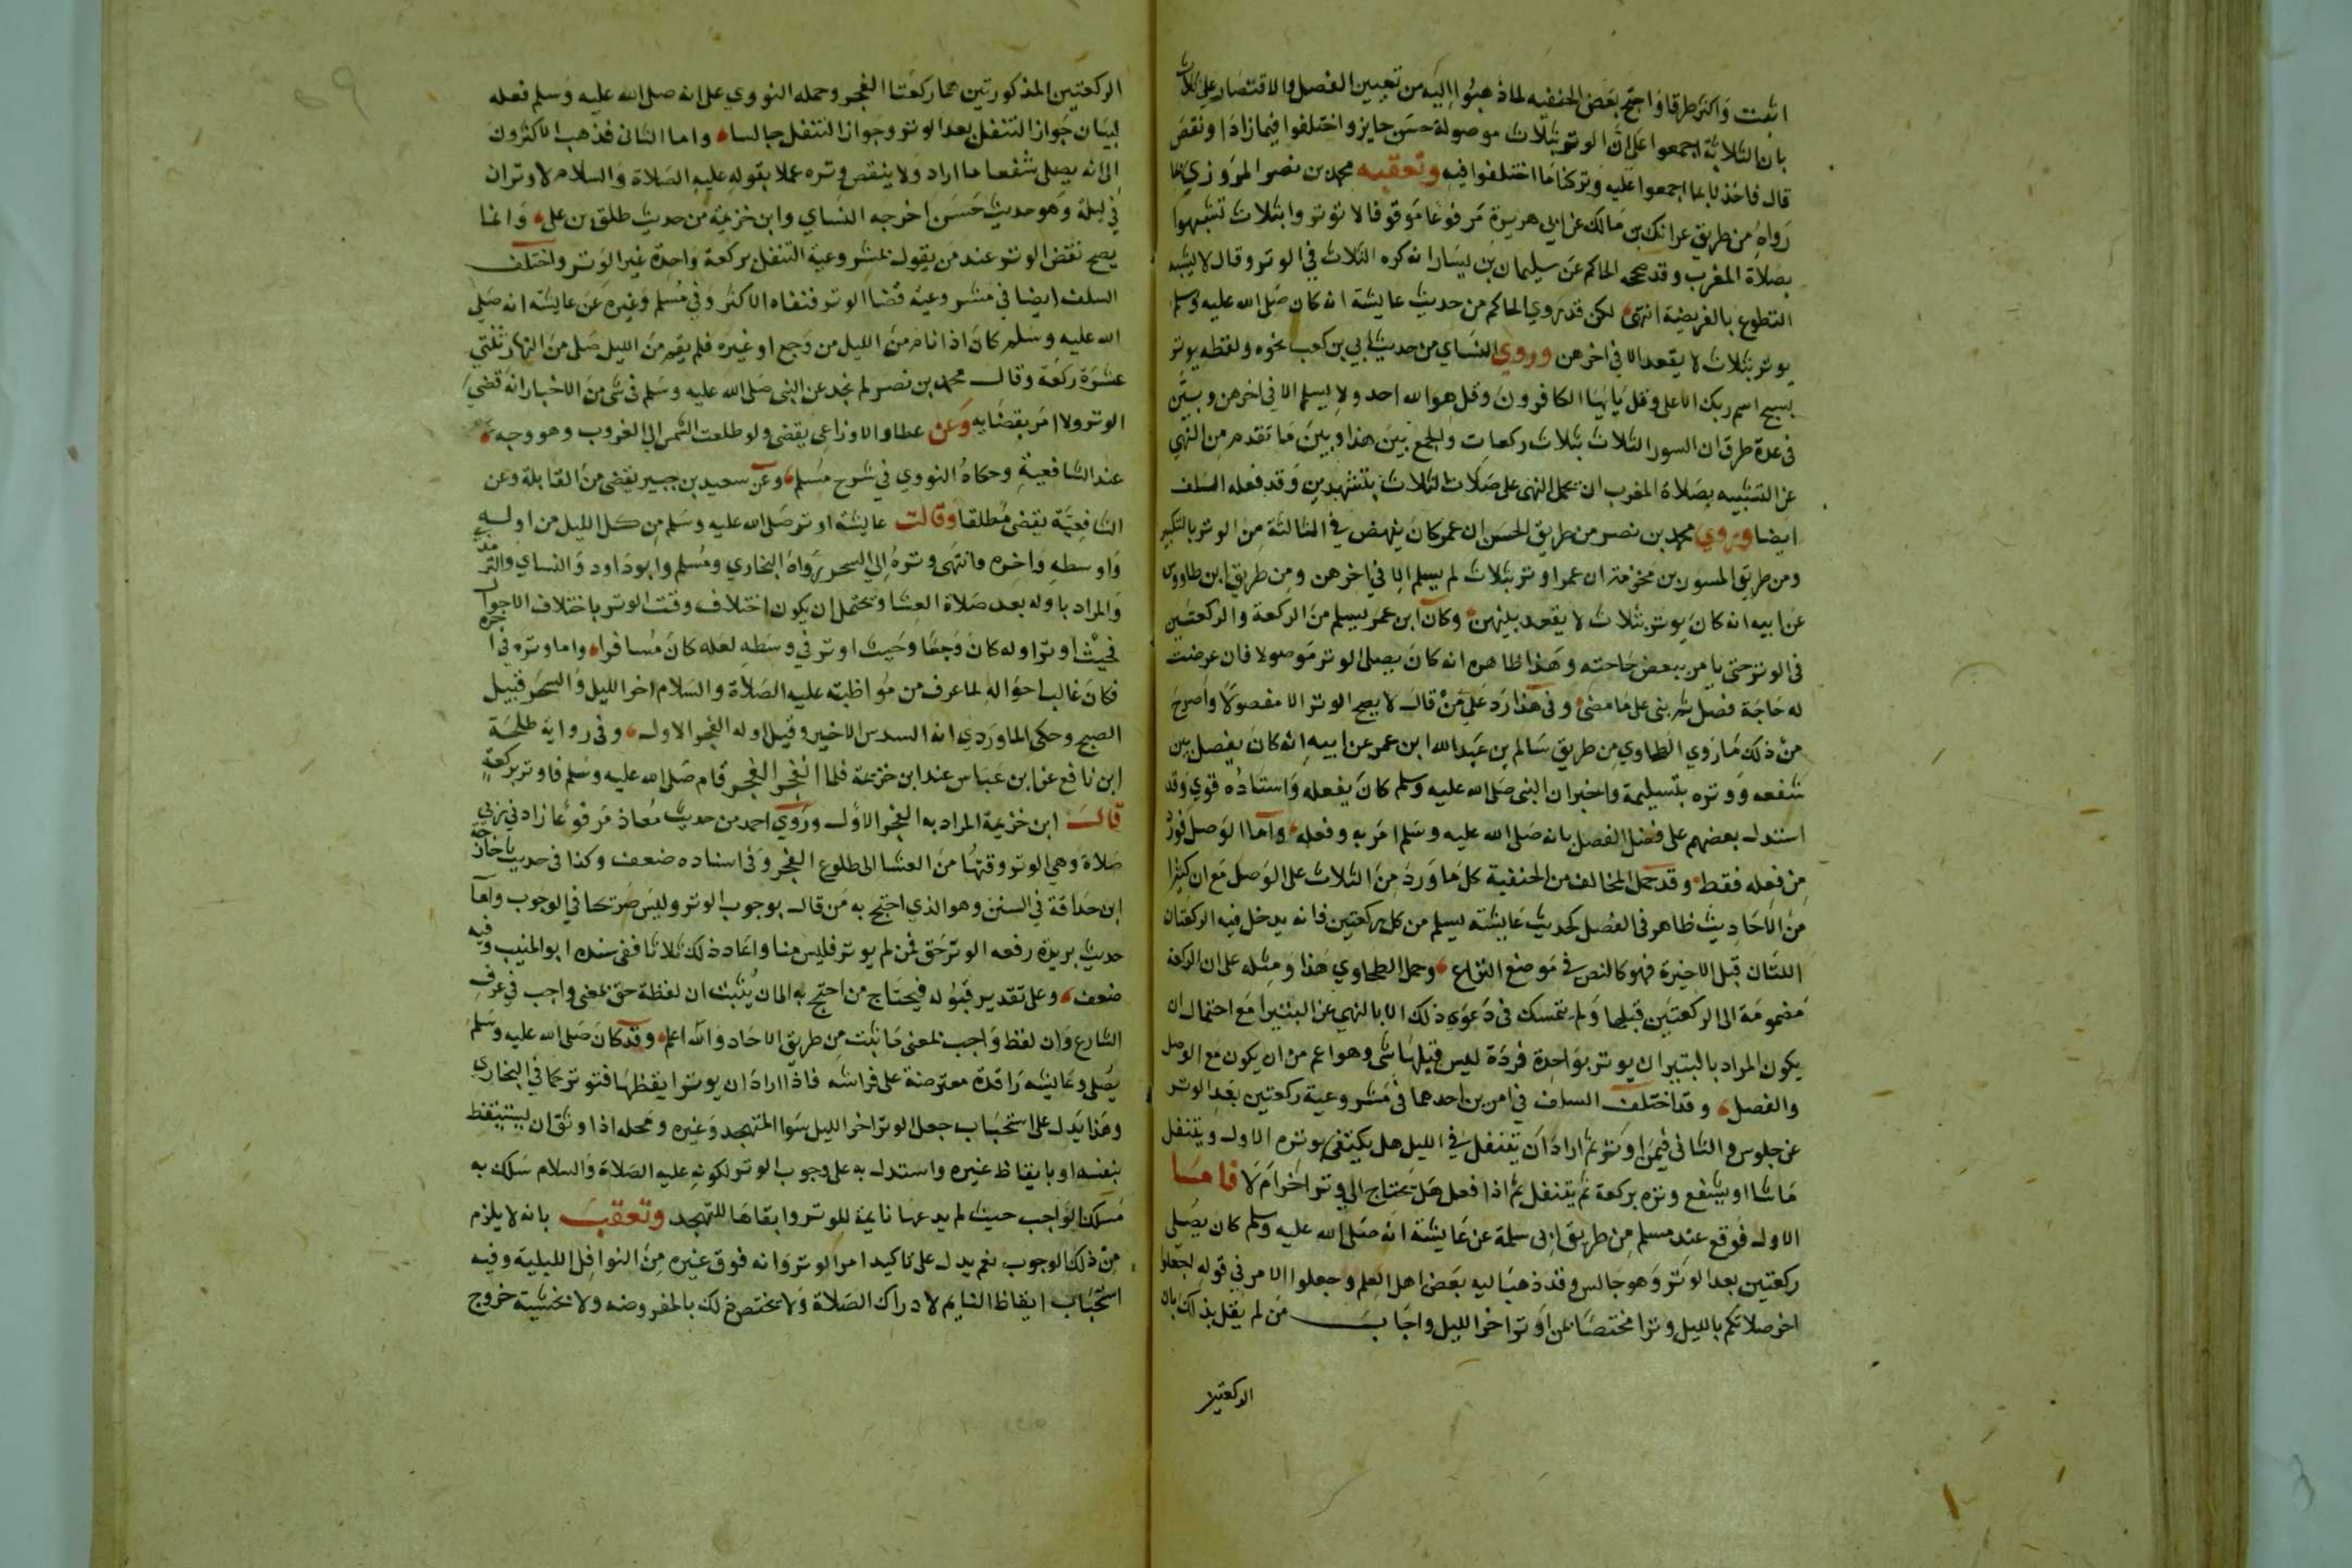 اثبت واكثر طرقا واحتج بعض الحنفيه لما ذهبوا اليه من تعيين الفصل والاقتصار على ثلاث
بان الثلاثة اجمعوا على ان الوتر بثلاث موصولة حسن جايز واختلفوا فيما زاد او نقص
قال فاخذنا بما اجمعوا عليه وتركنا ما اختلفوا فيه وتعقبه محمد بن نصر المروزي بما
رواه من طريق عراك بن مالك عن ابي هريرة مرفوعا موقوفا لا توتروا بثلاث تشبهوا
بصلاة المغرب وقد صححه الحاكم عن سليمان بن يسار انه كره الثلاث في الوتر وقال لا يشبه
التطوع بالفريضة انتهى لكن قد روي الحاكم من حديث عايشة انه كان صلى الله عليه وسلم
يوتر بثلاث لا يقعد الا في اخرهن وروي النساي من حديث ابي بن كعب نحوه ولفظه يوتر
بسبح اسم ربك الاعلى وقل يا ايها الكافرون وقل هو الله احد ولا يسلم الا في اخرهن وبين
في عدة طرق ان السور الثلاث بثلاث ركعات والجمع بين هذا وبين ما تقدم من النهي
عن التشبيه بصلاة المغرب ان يحمل النهى على صلاة الثلاث بتشهدين وقد فعله السلف
ايضا وروي محمد بن نصر من طريق الحسن ان عمر كان ينهض في الثالثة من الوتر بالتكبير
ومن طريق المسور بن مخرمة ان عمر اوتر بثلاث لم يسلم الا في اخرهن ومن طريق ابن طاووس
عن ابيه انه كان يوتر بثلاث لا يقعد بينهن وكان ابن عمر يسلم من الركعة والركعتين
في الوتر حتى يامر ببعض حاجته وهذا ظاهره انه كان يصلى الوتر موصولا فان عرضت
له حاجة فصل ثم بنى على ما مضى وفي هذا رد على من قال لا يصح الوتر الا مفصولا واصرح
من ذلك ما روي الطحاوي من طريق سالم بن عبد الله ابن عمر عن ابيه انه كان يفصل بين
شفعه ووتره بتسليمة واخبر ان النبى صلى الله عليه وسلم كان يفعله واسناده قوي وقد
استدل بعضهم على فضل الفصل بانه صلى الله عليه وسلم امر به وفعله واما الوصل فورد
من فعله فقط وقد حمل المخالف من الحنفية كل ما ورد من الثلاث على الوصل مع ان كثيرا
من الاحاديث ظاهر في الفصل كحديث عايشة يسلم من كل ركعتين فانه يدخل فيه الركعتان
اللتان قبل الاخيرة فهو كالنص في موضع النزاع وحمل الطحاوي هذا ومثله على ان الركعة
مضمومة الى الركعتين قبلها ولم يتمسك في دعوي ذلك الا بالنهي عن البتيرا مع احتمال ان
يكون المراد بالبتيرا ان يوتر بواحدة فردة ليس قبلها شي وهو اعم من ان يكون مع الوصل
والفصل وقد اختلف السلف في امرين احدهما في مشروعية ركعتين بعد الوتر
عن جلوس والثاني فيمن اوتر ثم اراد ان يتنفل في الليل هل يكتفى بوتره الاول ويتنفل
ما شا او يشفع وتره بركعة ثم يتنفل ثم اذا فعل هل يحتاج الي وتر اخر ام لا فاما
الاول فوقع عند مسلم من طريق ابي سلمة عن عايشة انه صلى الله عليه وسلم كان يصلي
ركعتين بعد الوتر وهو جالس وقد ذهب اليه بعض اهل العلم وجعلوا الامر في قوله اجعلوا
اخر صلاتكم بالليل وترا مختصا بمن اوتر اخر الليل واجاب من لم يقل بذلك بان
الركعتين
الركعتين المذكورتين هما ركعتا الفجر وحمله النووي على انه صلى الله عليه وسلم فعله
لبيان جواز التنفل بعد الوتر وجواز التنفل جالسا واما الثانى فذهب الاكثرون
الى انه يصلى شفعا ما اراد ولا ينقض وتره عملا بقوله عليه الصلاة والسلام لا وتران
في ليلة وهو حديث حسن اخرجه النساي وابن خزيمة من حديث طلق بن على وانما
يصح نقض الوتر عند من يقول بمشروعية التنفل بركعة واحدة غير الوتر واختلف
السلف ايضا في مشروعية قضا الوتر فنفاه الاكثر وفي مسلم وغيره عن عايشة انه صلى
الله عليه وسلم كان اذا نام من الليل من وجع او غيره فلم يقم من الليل صلى من النهار ثنتي
عشرة ركعة وقال محمد بن نصر لم نجد عن النبى صلى الله عليه وسلم في شى من الاخبار انه قضي
الوتر ولا امر بقضايه وعن عطا والاوزاعي يقضى ولو طلعت الشمس الي الغروب وهو وجه
عند الشافعية وحكاه النووي في شرح مسلم وعن سعيد بن جبير يقضى من القابلة وعن
الشافعية يقضى مطلقا وقالت عايشة اوتر صلى الله عليه وسلم من كل الليل من اوله
واوسطه واخره وانتهى وتره الي السحر رواه البخاري ومسلم وابو داود والنساي والترمذ
والمراد باوله بعد صلاة العشا ويحتمل ان يكون اختلاف وقت الوتر باختلاف الاحوال
فحيث اوتر اوله كان وجعا وحيث اوتر في وسطه لعله كان مسافرا واما وتره في اخره
فكان غالب احواله لما عرف من مواظبته عليه الصلاة والسلام اخر الليل والسحر قبيل
الصبح وحكى الماوردي انه السدس الاخير وقيل اوله الفجر الاول وفي رواية طلحة
ابن نافع عن ابن عباس عند ابن خزيمة فلما انفجر الفجر قام صلى الله عليه وسلم فاوتر بركعة
قال ابن خزيمة المراد به الفجر الاول وروي احمد من حديث معاذ مرفوعا زادني ربي
صلاة وهي الوتر وقتها من العشا الى طلوع الفجر وفي اسناده ضعف وكذا في حديث خارجة
ابن حذافة في السنن وهو الذي احتج به من قال بوجوب الوتر وليس صريحا في الوجوب واما
حديث بريدة رفعه الوتر حق فمن لم يوتر فليس منا واعاد ذلك ثلاثا ففي سنده ابو المنيب وفيه
ضعف وعلى تقدير قبوله فيحتاج من احتج به الى ان يثبت ان لفظة حق بمعنى واجب في عرف
الشارع وان لفظ واجب بمعنى ما ثبت من طريق الاحاد والله اعلم وقد كان صلى الله عليه وسلم
يصلى وعايشة راقدة معترضة على فراشه فاذا اراد ان يوتر ايقظها فتوتر كما في البخاري
وهذا يدل على استحباب جعل الوتر اخر الليل سوا المتهجد وغيره ومحله اذا وثق ان يستيقظ
بنفسه او بايقاظ غيره واستدل به على وجوب الوتر لكونه عليه الصلاة والسلام سلك به
مسلك الواجب حيث لم يدعها نايمة للوتر وابقاها للتهجد وتعقب بانه لا يلزم
من ذلك الوجوب نعم يدل على تاكيد امر الوتر وانه فوق غيره من النوافل الليلية وفيه
استحباب ايقاظ النايم لادراك الصلاة ولا يختص ذلك بالمفروضه ولا بخشية خروج